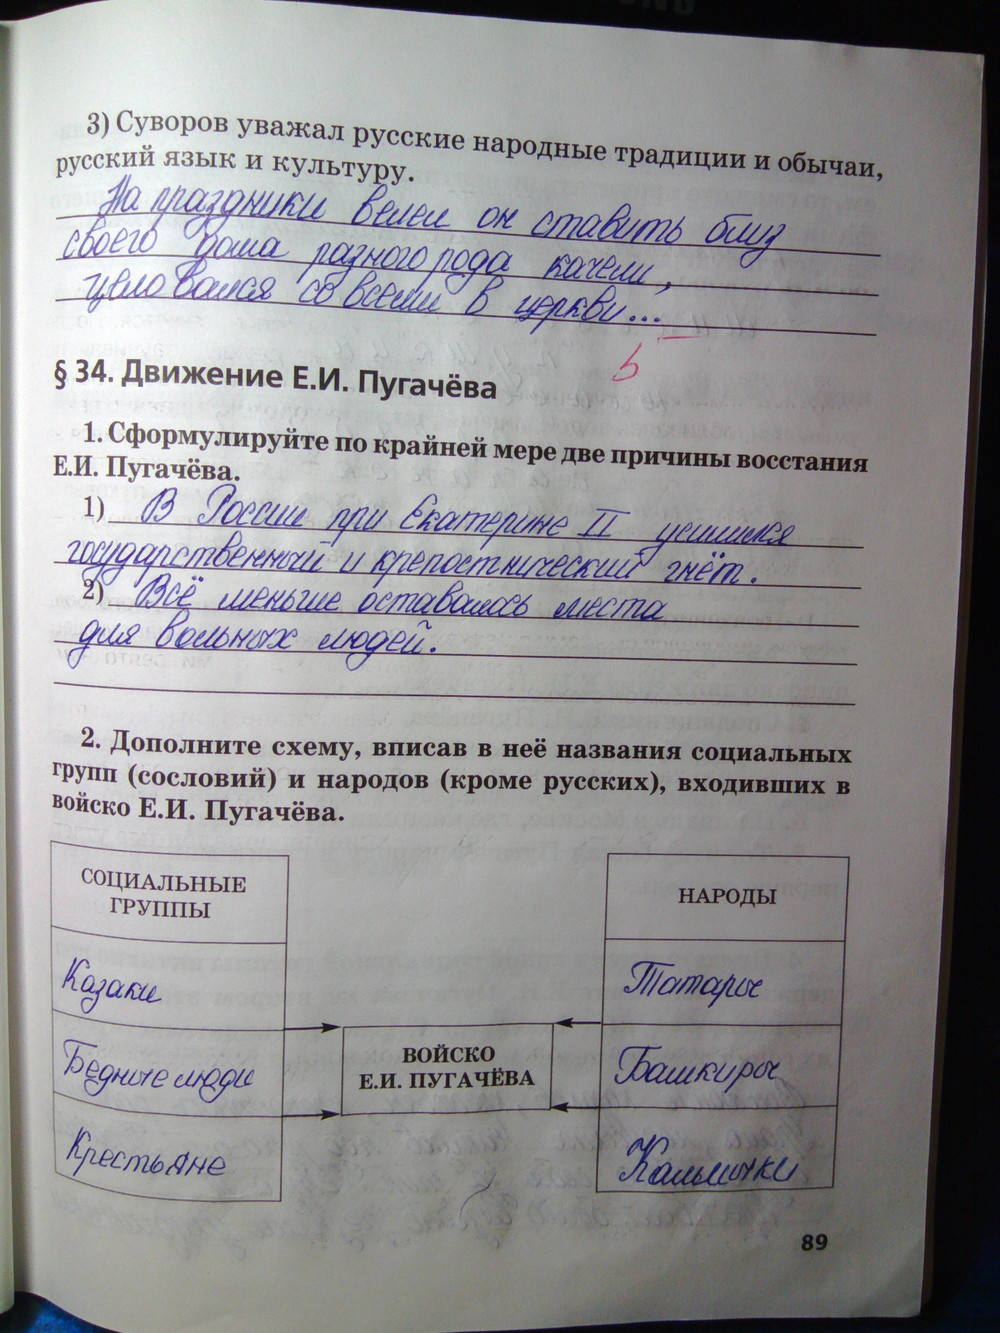 3) Суворов уважал русские народные традиции и обычаи,
русский язык и культуру.
На праздники велел он ставить близ
своего дома разного рода качели,
целовался со всеми в церкви...
5
§ 34. Движение Е.И. Пугачёва
1. Сформулируйте по крайней мере две причины восстания
Е.И. Пугачёва.
1) В России при Екатерине II усилился
государственный и крепостнический гнёт.
2) Всё меньше оставалось места
для вольных людей.
2. Дополните схему, вписав в неё названия социальных
групп (сословий) и народов (кроме русских), входивших в
войско Е.И. Пугачёва.
СОЦИАЛЬНЫЕ
ГРУППЫ
НАРОДЫ
Казаки
Татары
ВОЙСКО
Е.И. ПУГАЧЁВА
Бедные люди
Башкиры
Крестьяне
Калмыки
89